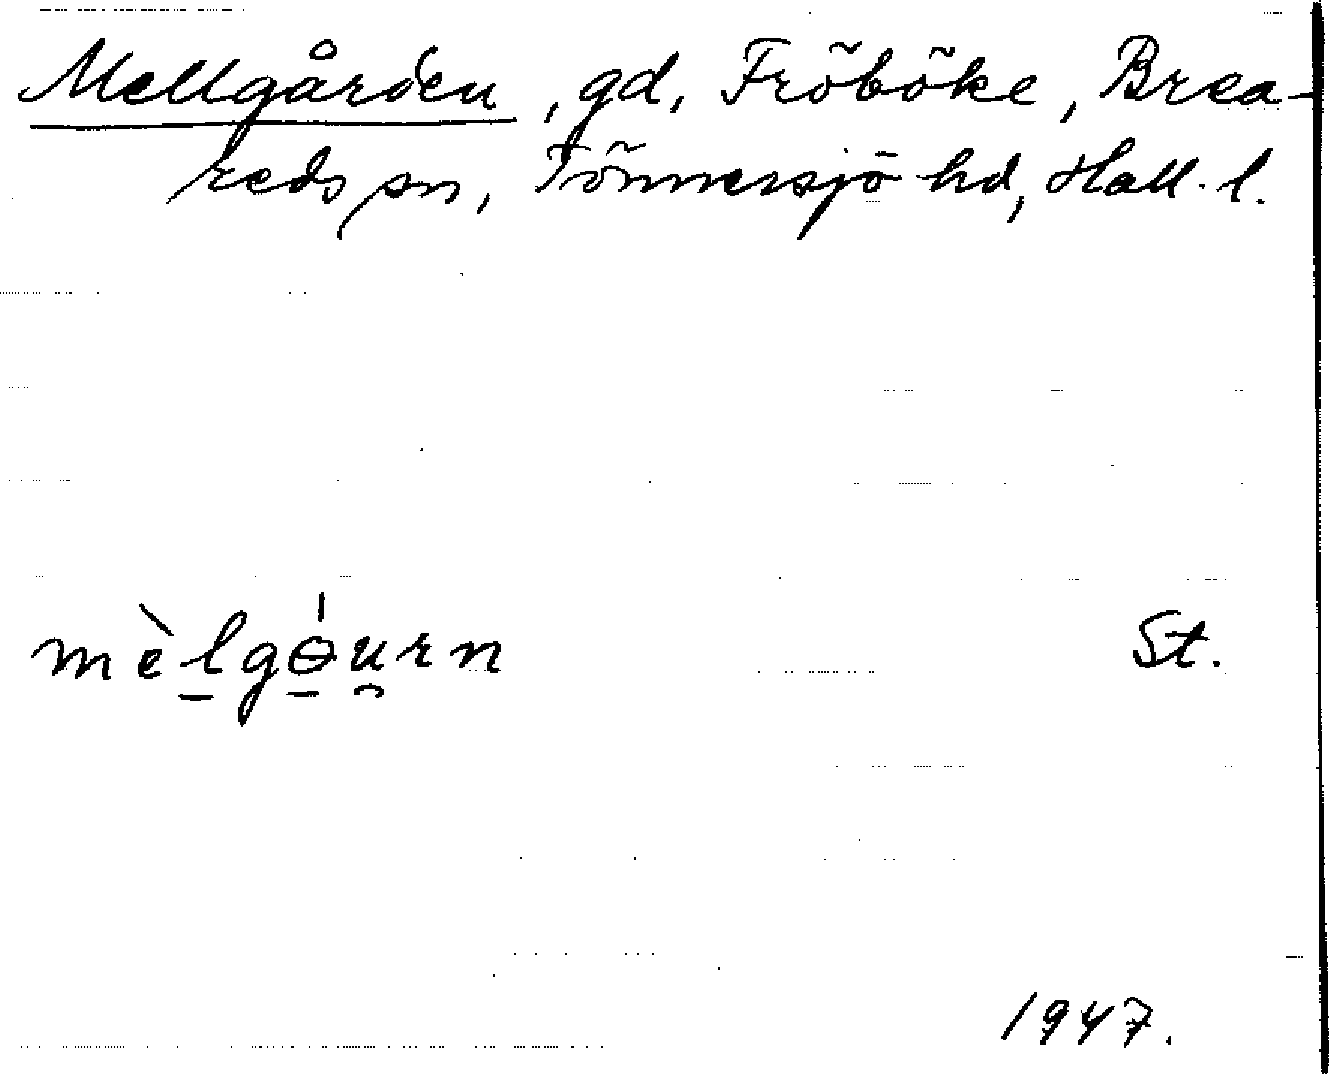 Mellgården, gd, Fröböke, Brea-
reds sn, Tönnersjö hd, Hall. l.
mèl̠gɵ̠́u̯rn St.
1947.